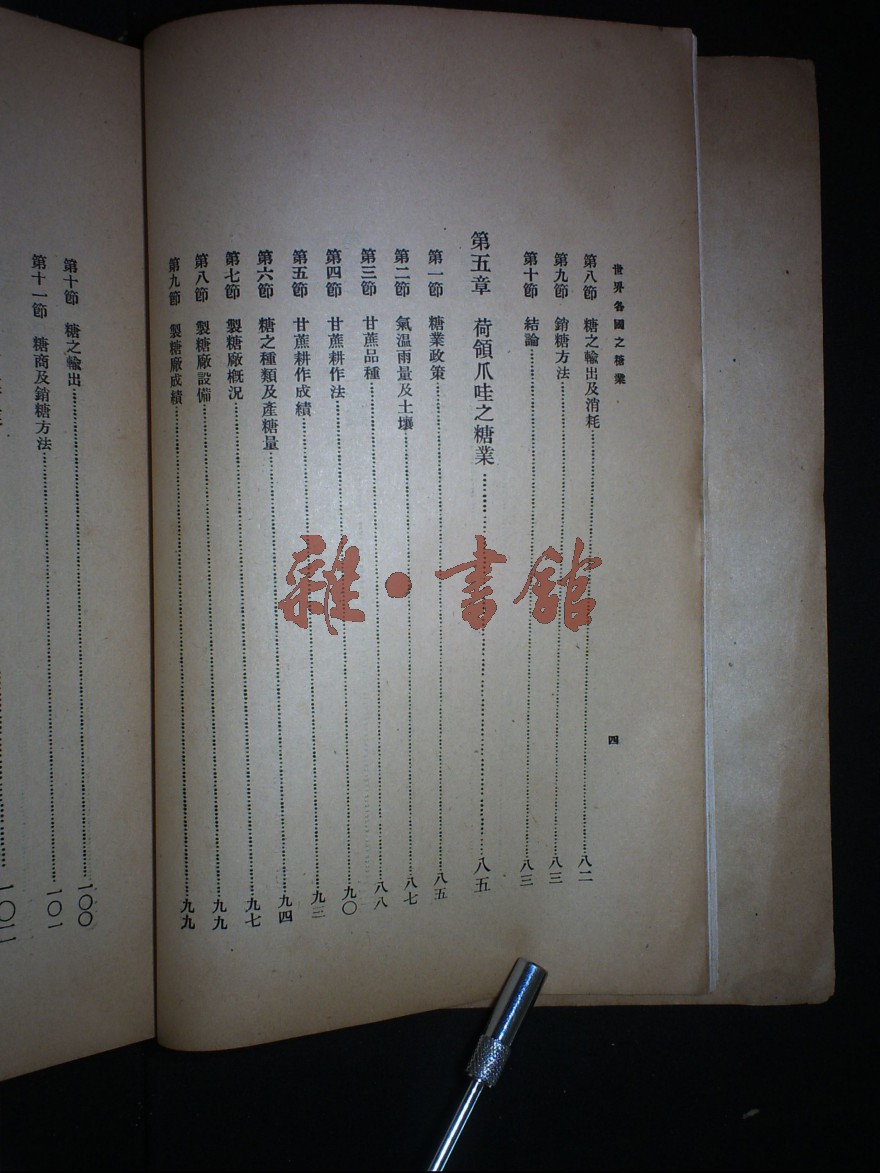 世界各國之糖業
四
第八節　糖之輸出及消耗……八二
第九節　銷糖方法……八三
第十節　結論……八三
第五章　荷領爪哇之糖業……八五
第一節　糖業政策……八五
第二節　氣温雨量及土壤……八七
第三節　甘蔗品種……八八
第四節　甘蔗耕作法……九〇
第五節　甘蔗耕作成績……九三
第六節　糖之種類及產糖量……九四
第七節　製糖廠概況……九七
第八節　製糖廠設備……九九
第九節　製糖廠成績……九九
第十節　糖之輸出……一〇〇
第十一節　糖商及銷糖方法……一〇一
一〇二
雜·書館